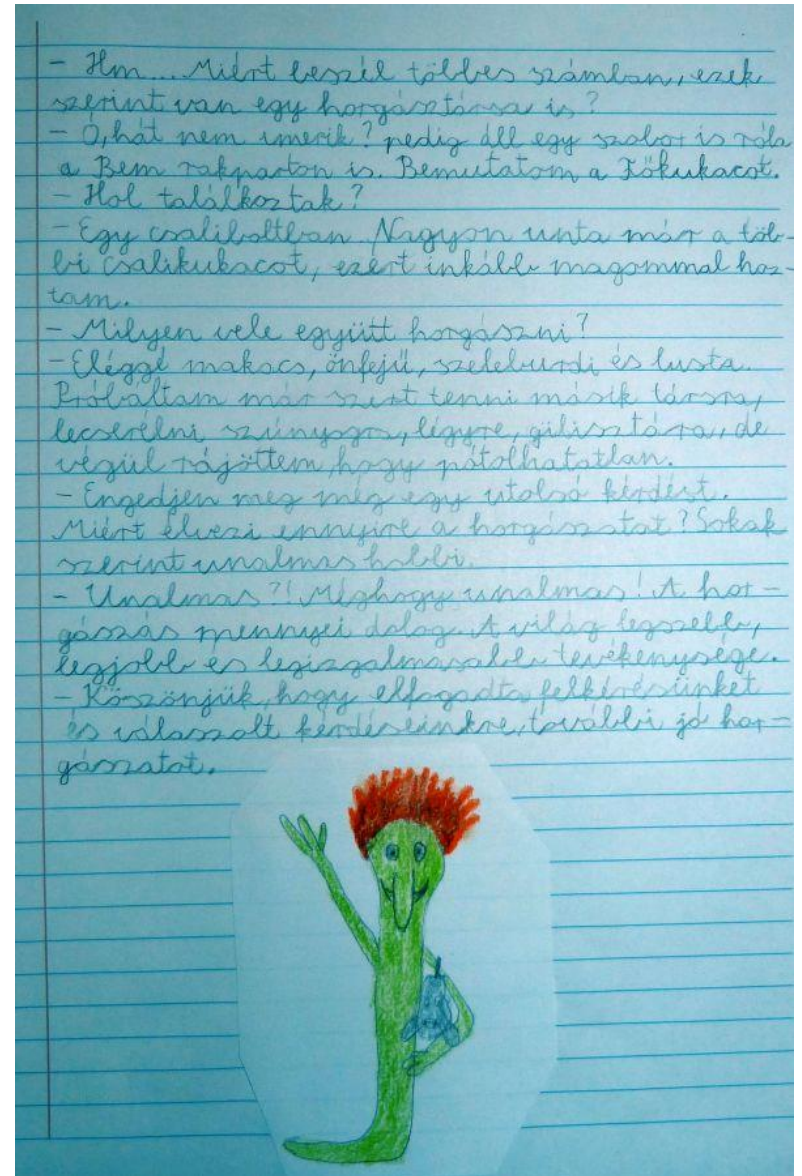 - Hm.... Miért beszél többes számban, ezek
szerint van egy horgásztársa is?
- Ó, hát nem ismerik? pedig áll egy szobor is róla
a Bem rakparton is. Bemutatom a Főkukacot.
- Hol találkoztak?
- Egy csaliboltban. Nagyon unta már a töb-
bi csalikukacot, ezért inkább magammal hoz-
tam.
- Milyen vele együtt horgászni?
- Eléggé makacs, önfejű, szeleburdi és lusta.
Próbáltam már szert tenni másik társra,
lecserélni szúnyogra, légyre, gilisztára, de
végül rájöttem, hogy pótolhatatlan.
- Engedjen meg még egy utolsó kérdést.
Miért élvezi ennyire a horgászatot? Sokak
szerint unalmas hobbi.
- Unalmas?! Méghogy unalmas! A hor-
gászás mennyei dolog. A világ legszebb,
legjobb és legizgalmasabb tevékenysége.
- Köszönjük, hogy elfogadta felkérésünket
és válaszolt kérdéseinkre, további jó hor-
gászatot.